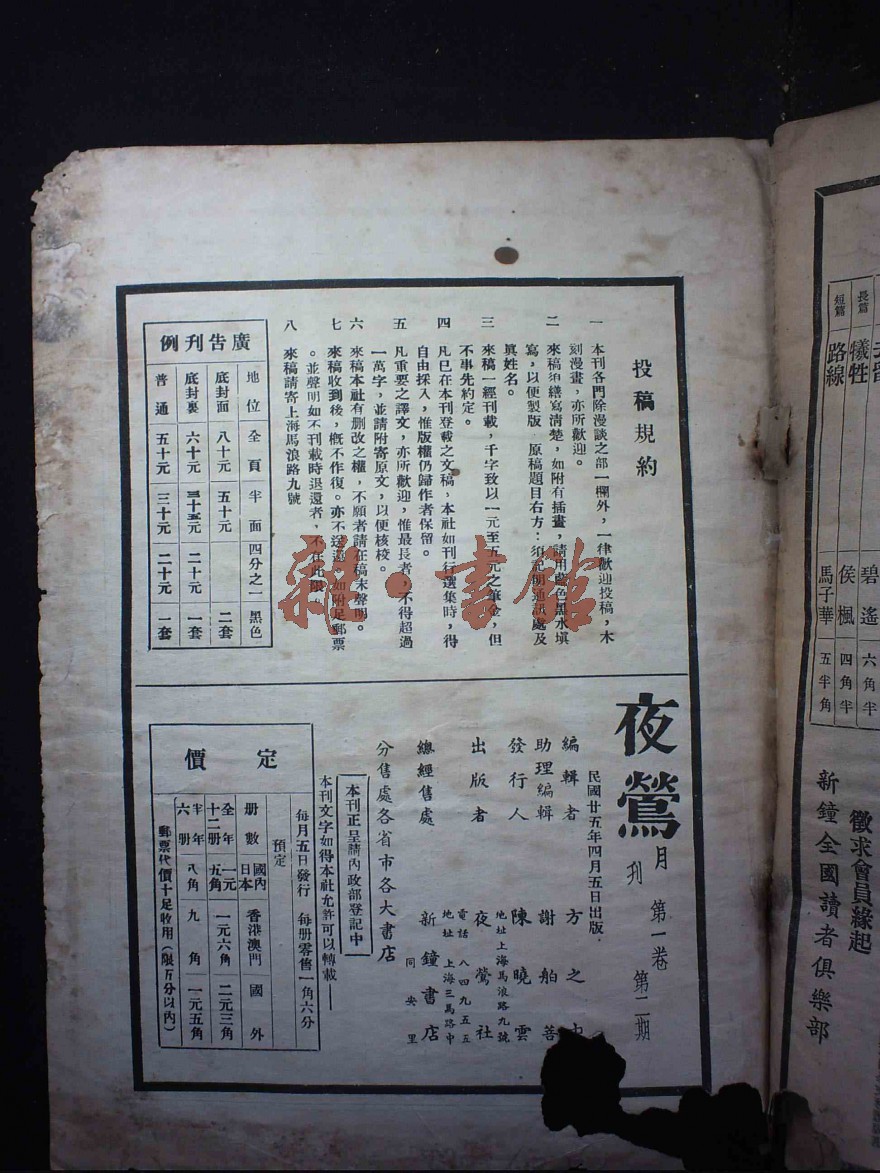 投稿規約
一 本刊各門除漫談之部一欄外，一律歡迎投稿，木
刻漫畫，亦所歡迎。
二 來稿須繕寫清楚，如附有插畫，請用藍色黑水填
寫，以便製版 原稿題目右方：須記明通訊處及
眞姓名。
三 來稿一經刊載，千字致以一元至五元之筆金，但
不事先約定。
四 凡已在本刊登載之文稿，本社如刊行選集時，得
自由採入，惟版權仍歸作者保留。
五 凡重要之譯文，亦所歡迎，惟最長者，不得超過
一萬字，並請附寄原文，以便核校。
六 來稿本社有刪改之權，不願者請在稿末聲明。
七 來稿收到後，槪不作復。亦不送還。如附足郵票
。並聲明如不刊載時退還者，不在此限。
八 來稿請寄上海馬浪路九號
廣告刊例
地位 全頁 半面 四分之一 黑色
底封面 八十元 五十元 二套
底封裏 六十元 三十五元 二十元 一套
普通 五十元 三十元 二十元 一套
夜鶯月刊 第一卷 第二期
民國廿五年四月五日出版．
編輯者 方之中
助理編輯 謝船菩
發行人 陳曉雲
地址上海馬浪路九號
出版者 夜鶯社
電話 八四九五五
地址 上海三馬路中
總經售處 新鐘書店
同央里
分售處各省市各大書店
本刊正呈請內政部登記中
本刊文字如得本社允許可以轉載——
定價
每月五日發行 每册零售一角六分
預定
册數 國內日本 香港澳門 國外
全年十二册 一元五角 一元六角 二元三角
半年六册 八角 九角 一元五角
郵票代價十足收用（限五分以內）
碧遙 六角半
長篇 犧牲 侯楓 四角半
短篇 路線 馬子華 五半角
徵求會員緣起
新鐘全國讀者俱樂部
雜·書館